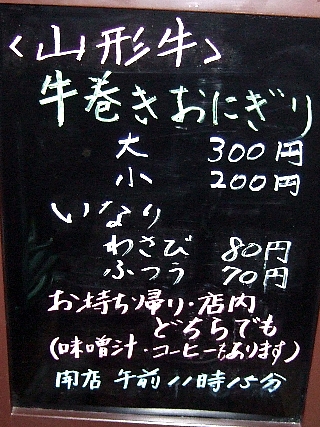 <山形牛>
牛巻きおにぎり
大 300円
小 200円
いなり
わさび 80円
ふつう 70円
お持ち帰り・店内
どちらでも
(味噌汁・コーヒーもあります)
開店 午前11時15分